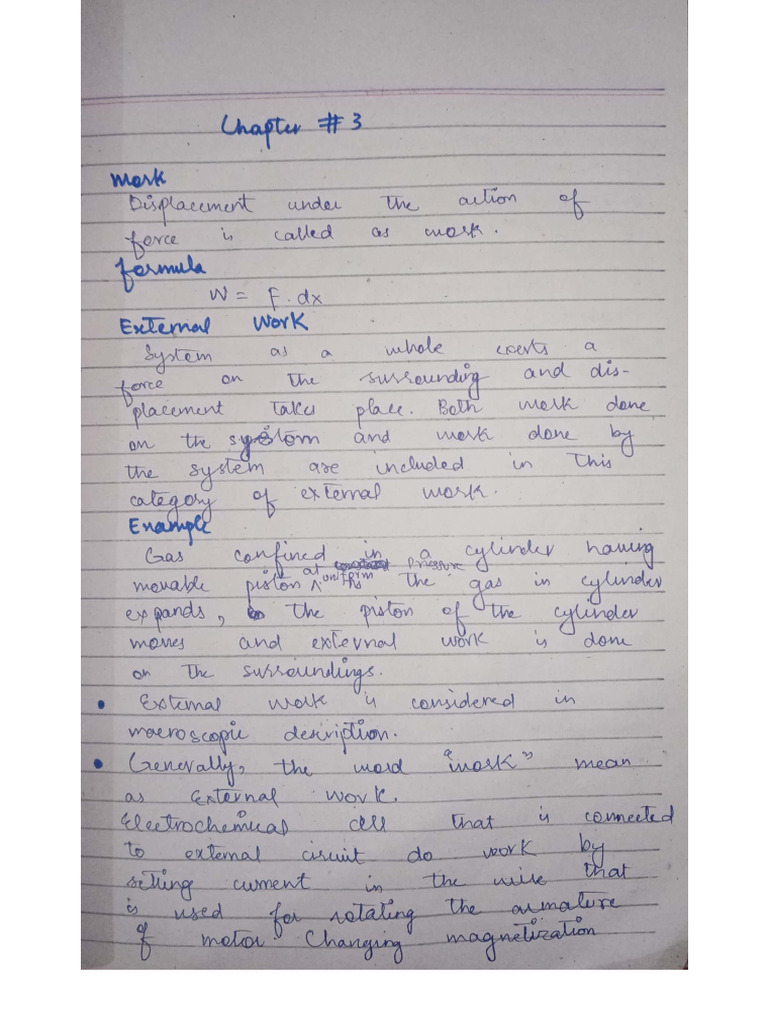 Chapter # 3
Work
Displacement under the action of
force is called as work.
formula
W = F.dx
External Work
System as a whole exerts a
force on the surrounding and dis-
placement takes place. Both work done
on the system and work done by
the system are included in this
category of external work.
Example
Gas confined in a cylinder having
movable piston at uniform pressure As the gas in cylinder
expands, the piston of the cylinder
moves and external work is done
on the surroundings.
• External work is considered in
macroscopic description.
• Generally, the word "work" mean
as External work.
Electrochemical cell that is connected
to external circuit do work by
setting current in the wire that
is used for rotating the armature
of motor Changing magnetization